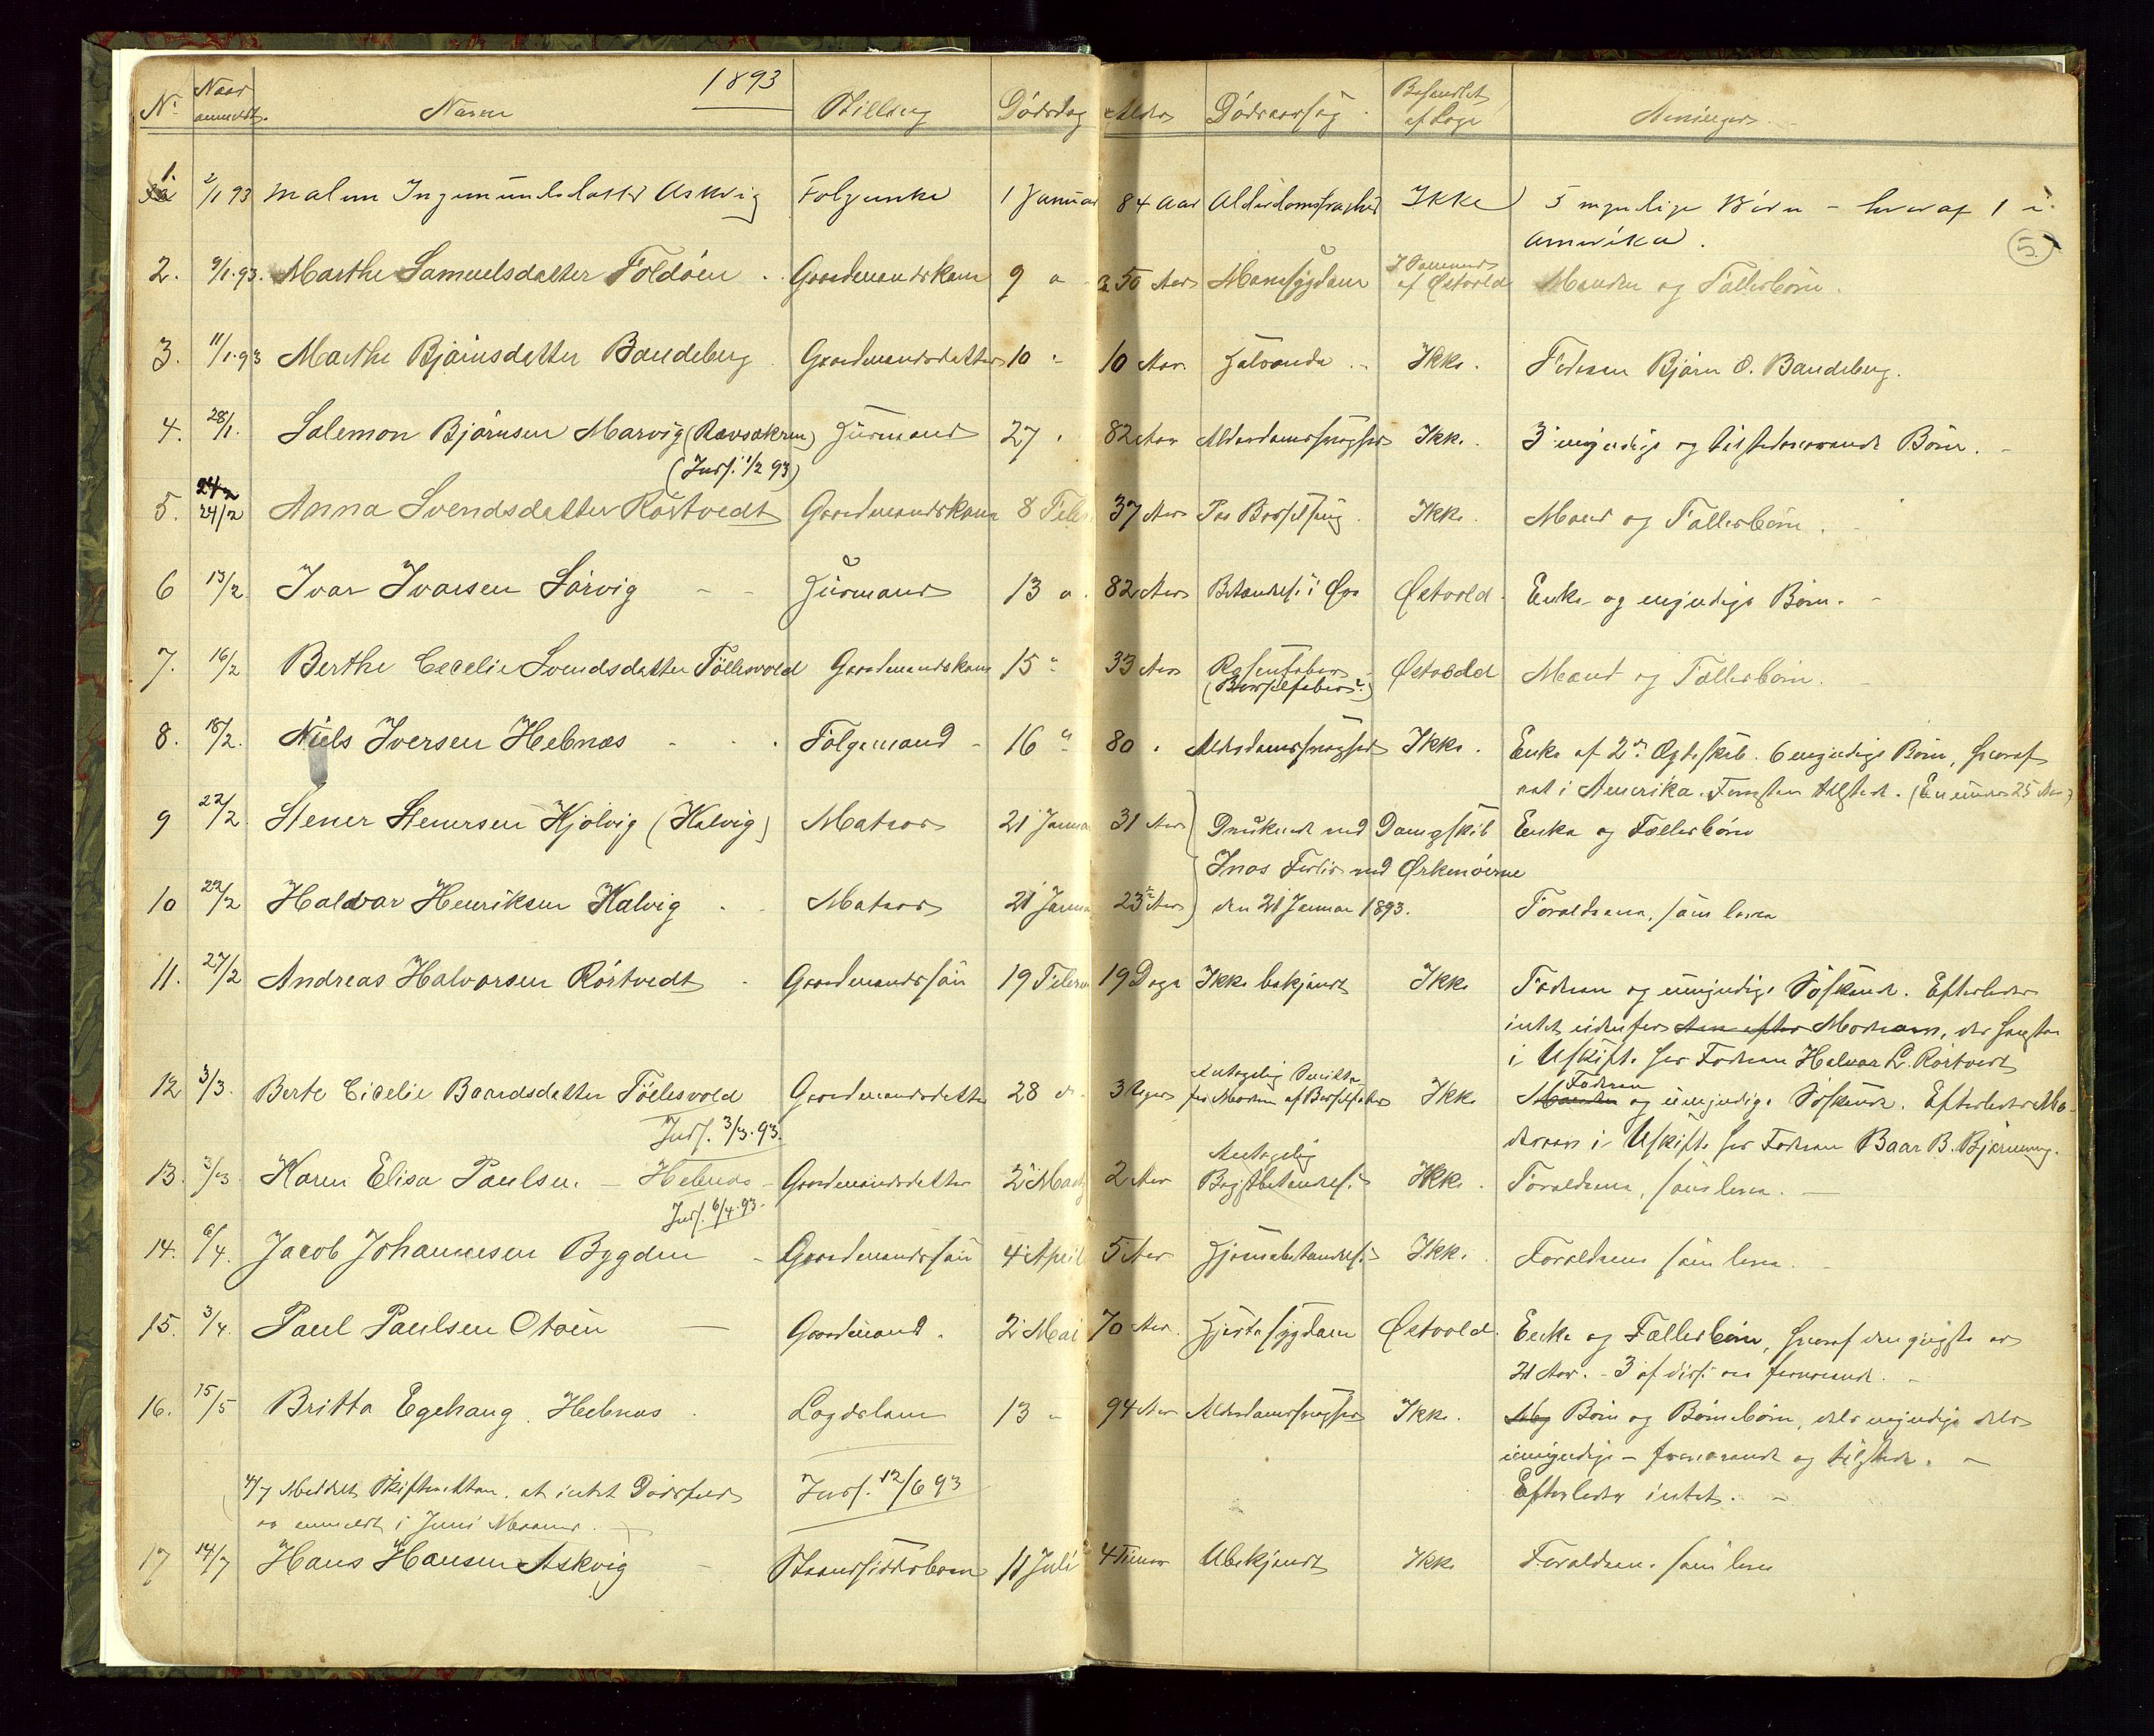 1893
No. Naar anmeldt. Navn Stilling Dødsdag Alder Dødsaarsag Behandlet af Læge Arvinger
1. 2/1 93 Malene Ingemundsdatter Askvig Folgeenke 1 Januar 84 Aar Alderdomssvaghed Ikke 5 myndige Børn – hvoraf 1 i
Amerika.
5
2. 9/1.93. Marthe Samuelsdatter Foldøen Gaardmandskone 9 " 50 Aar Mavesygdom af Østvold Manden og Fællesbørn.
3. 11/1.93 Marthe Bjørnsdatter Bandeberg Gaardmandsdatter 10 " 10 Aar Ikke. Faderen Bjørn O. Bandeberg.
4. 28/1. Salemon Bjørnsen Marvig (Ravsakren) Huusmand 27 " 82 Aar Alderdomssvaghed Ikke. 3 myndige og tilstedeværende Børn.
(Inds. 1/2 93)
5. 24/2 Anna Svendsdatter Rørtvedt Gaardmandskone 8 Febr. 37 Aar Paa Barselseng Ikke. Mand og Fællesbørn.
6 13/2 Ivar Ivarsen Sørvig Huusmand 13 " 82 Aar Betændelse i Østvold. Enke og myndige Børn.
7. 16/2 Berthe Cecelie Svendsdatter Tøllesvold Gaardmandskone 15 " 33 Aar Østvold Mand og Fællesbørn.
(Barselfeber?)
8. 18/2. Niels Iversen Hebnæs Folgemand 16 " 80 " Alderdomssvaghed Ikke. Enke af 2det Ægteskab. 6 myndige Børn, hvoraf
eet i Amerika. tilstede. (En under 25 Aar)
9 22/2 Stener Stenersen Kjølvig (Kalvig) Matros 21 Januar 31 Aar Druknede med Dampskib Enke og Fællesbørn
Forlis ved Ørkenøerne
10 22/2 Haldvar Henriksen Kalvig Matros 21 Januar 23 Aar den 21 Januar 1893. Forældrene, som lever
11. 27/2 Andreas Halvorsen Rørtvedt Gaardmandssøn 19 Februar 19 Dage Ikke bekjendt Ikke Faderen og umyndige Søskende. Efterlader
intet udenfor Arv efter Moderen, der hensidder
i Uskifte hos Faderen Halvar L. Rørtvedt
12 3/3. Berte Cicelie Baardsdatter Tøllesvold Gaardmandsdatter 28 " 3 Uger Antagelig Smitte fra Moderen af Barselfeber Ikke Manden Faderen og umyndige Søskende. Efterlader Mo-
Inds. 3/3.93.
derarv i Uskifte hos Faderen Baar B. Bjørnevog.
13. 3/3 Karen Elisa Paulsen – Hebnæs – Gaardmandsdatter 2 Marts 2 Aar Antagelig Brystbetændelse Ikke. Forældrene, som lever.
Inds. 6/4.93.
14. 6/4. Jacob Johannesen Bygden Gaardmandssøn 4 April 5 Aar Hjernebetændelse Ikke. Forældrene som lever.
15. 3/4. Paul Paulsen Otøen Gaardmand. 2 Mai 70 Aar. Hjertesygdom Østvold. Enke og Fællesbørn, hvoraf den yngste er
21 Aar. – 3 af disse er fraværende.
16. 15/5 Britta Egehaug. Hebnæs Lægdslem 13 " 94 Aar Alderdomssvaghed Ikke. Børn og Børnebørn, dels myndige dels
umyndige – fraværende og tilstede. –
Efterlader intet. –
4/7 Meddelt Skifteretten, at intet Dødsfald Inds. 12/6 93
er anmeldt i Juni Maaned.
17 14/7 Hans Hansen Askvig Strandsidderbarn 11 Juli 4 Timer Ubekjendt Ikke Forældrene som lever